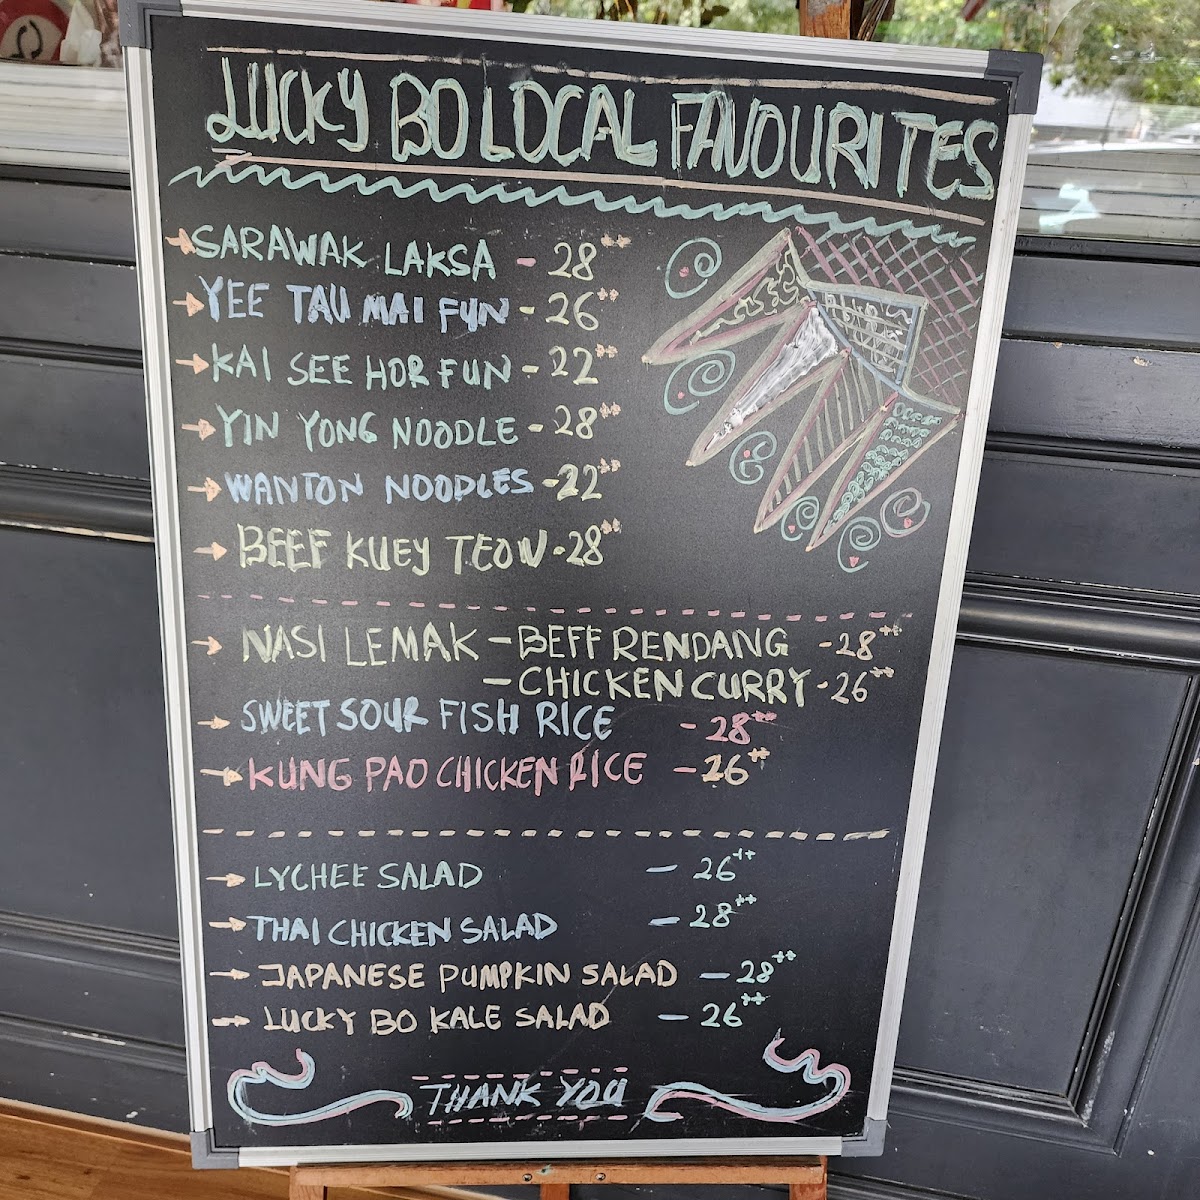 LUCKY BO LOCAL FAVOURITES
SARAWAK LAKSA - 28++
YEE TAU MAI FUN - 26++
KAI SEE HOR FUN - 22++
YIN YONG NOODLE - 28++
WANTON NOODLES - 22++
BEEF KUEY TEOW - 28++
NASI LEMAK - BEFF RENDANG - 28++
- CHICKEN CURRY - 26++
SWEET SOUR FISH RICE - 28++
KUNG PAO CHICKEN RICE - 26++
LYCHEE SALAD - 26++
THAI CHICKEN SALAD - 28++
JAPANESE PUMPKIN SALAD - 28++
LUCKY BO KALE SALAD - 26++
THANK YOU